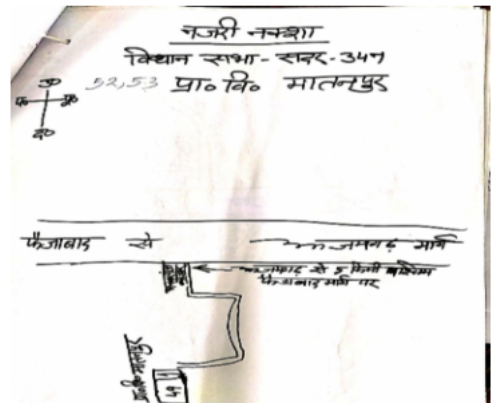 नजरी नक्शा
विधान सभा - सदर - 347
52,53 प्रा० वि० मातनपुर
उ०
प० पू०
द०
फैजाबाद से आजमगढ़ मार्ग
आजमगढ़ से 5 किमी पश्चिम
फैजाबाद मार्ग पर